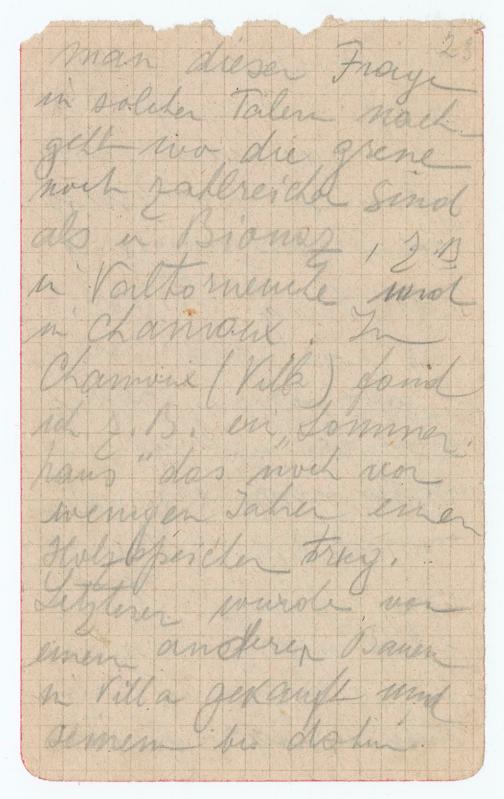 23
man dieser Frage
in solchen Tälern nach-
geht wo die grene
noch zahlreicher sind
als in Bionaz, z. B.
in Valtorneuche und
in Chamoix. In
Chamoix (Villa) fand
ich z. B. ein „Sommer-
haus" das noch vor
wenigen Jahren einen
Holzspeicher trug.
Letzterer wurde von
einem anderen Bauern
in Villa gekauft und
seinem bis dahin